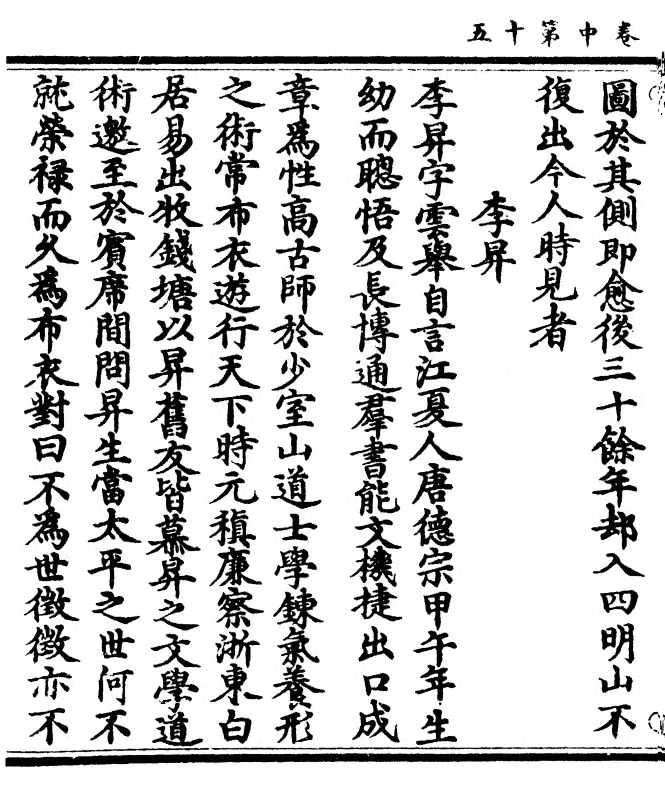 卷中第十五
圖於其側即愈後三十餘年却入四明山不
復出今人時見者
李昇
李昇字雲舉自言江夏人唐德宗甲午年生
幼而聰悟及長博通羣書能文機捷出口成
章為性高古師於少室山道士學鍊氣養形
之術常布衣遊行天下時元稹廉察浙東白
居易出牧錢塘以昇舊友皆慕昇之文學道
術邀至於賓席間問昇生當太平之世何不
就榮祿而久為布衣對曰不為世徵徵亦不